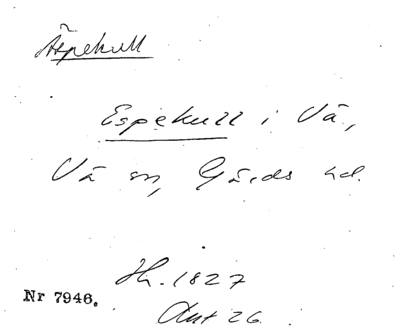 Äspekull
Espekull i Vä,
Vä sn, Gärds hd.
Hh. 1827
Nr 7946.
Akt 26